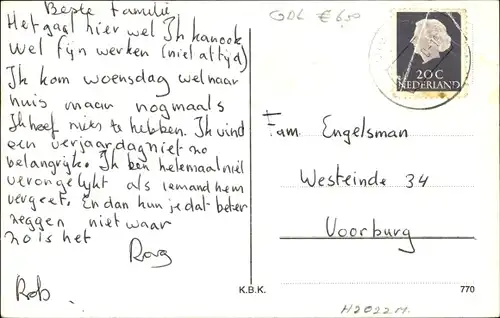 Beste Familie
Het gaat hier wel Ik kan ook
wel fijn werken (niet altijd)
Ik kom woensdag wel naar
huis maar nogmaals
Ik hoef niks te hebben. Ik vind
een verjaardag niet zo
belangrijk. Ik ben helemaal niet
verongelykt als iemand hem
vergeet. En dan kun je dat beter
zeggen niet waar
zo is het
Rob
€ 6,50
20C
NEDERLAND
Fam Engelsman
Westeinde 34
Voorburg
K.B.K.
770
H2022M.